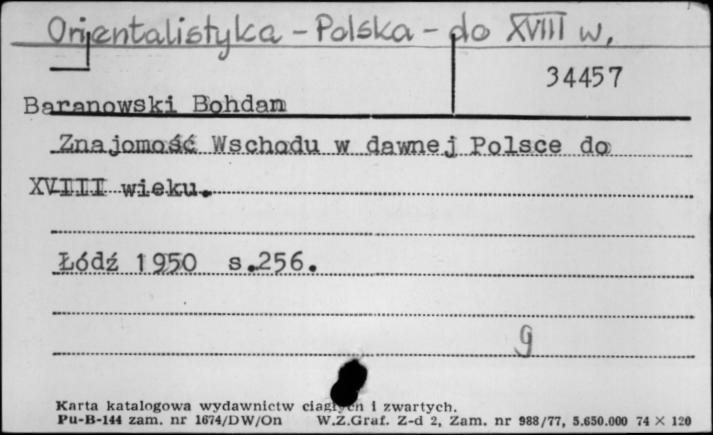 Orientalistyka - Polska - do XVIII w.
34457
Baranowski Bohdan
Znajomość Wschodu w dawnej Polsce do
XVIII wieku.
Łódź 1950 s.256.
g
Karta katalogowa wydawnictw ciągłych i zwartych.
Pu-B-144 zam. nr 1674/DW/On W.Z.Graf. Z-d 2, Zam. nr 988/77, 5.650.000 74 × 120